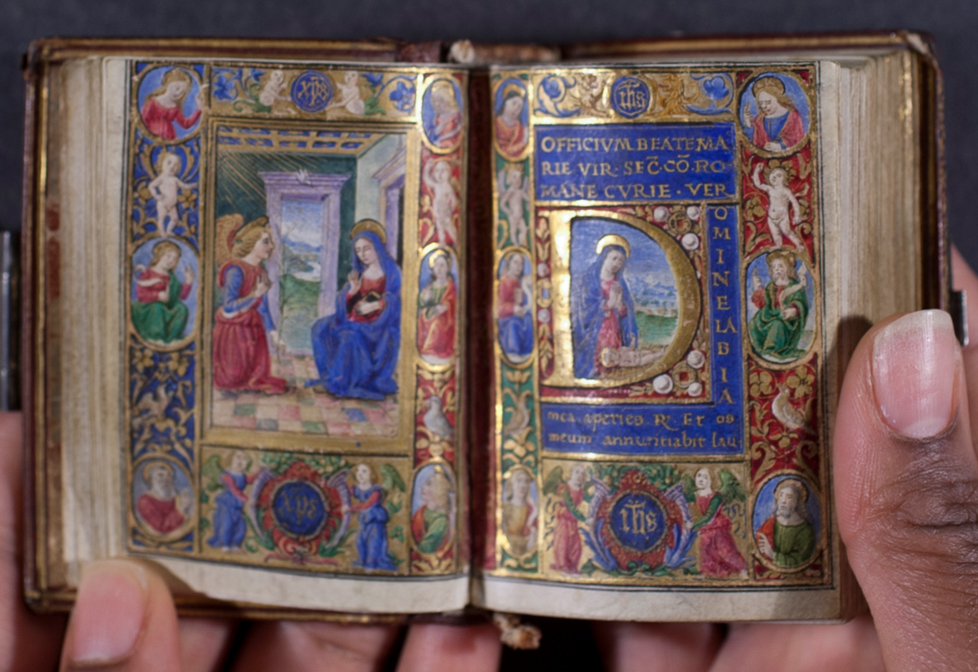 xps
ihs
OFFICIVM BEATE MA
RIE VIR· SEC̄·CŌ·RO
MANE CVRIE · VER
D
O
M
I
N
E
LA
B
I
A
mea aperies. R. Et os
meum annuntiabit lau
xps
ihs